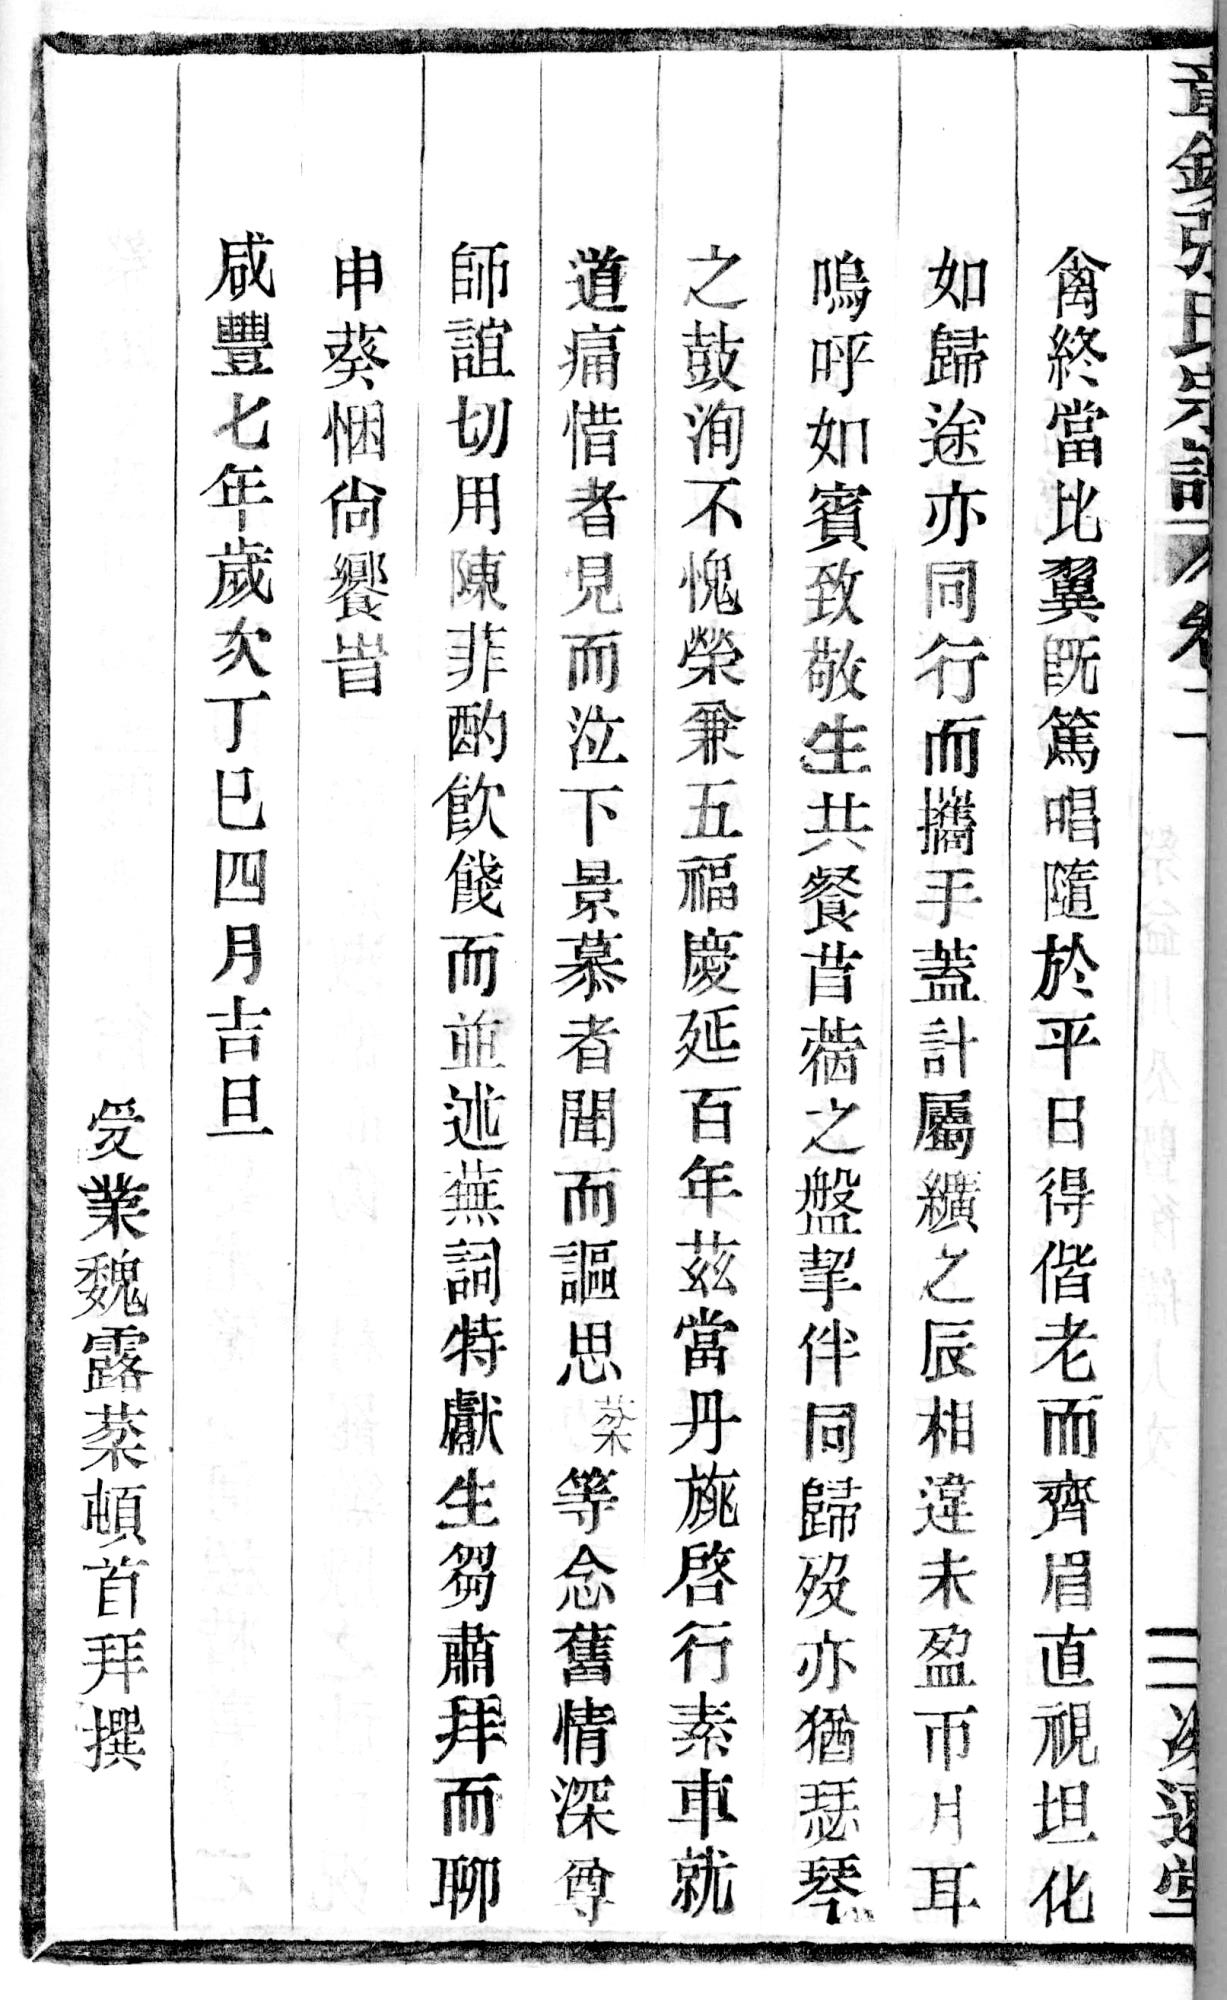 張氏宗譜 卷二 三
禽終當比翼旣篤唱隨於平日得偕老而齊眉直視坦化
如歸途亦同行而攜手蓋計屬纊之辰相違未盈帀月耳
嗚呼如賓致敬生共餐苜蓿之盤挈伴同歸歿亦猶瑟琴
之鼓洵不愧榮兼五福慶延百年茲當丹旐啓行素車就
道痛惜者見而泣下景慕者聞而謳思蕖等念舊情深尊
師誼切用陳菲酌飮餞而並述蕪詞特獻生芻肅拜而聊
申葵悃尙饗旹
咸豐七年歲次丁巳四月吉旦
受業魏露蕖頓首拜撰